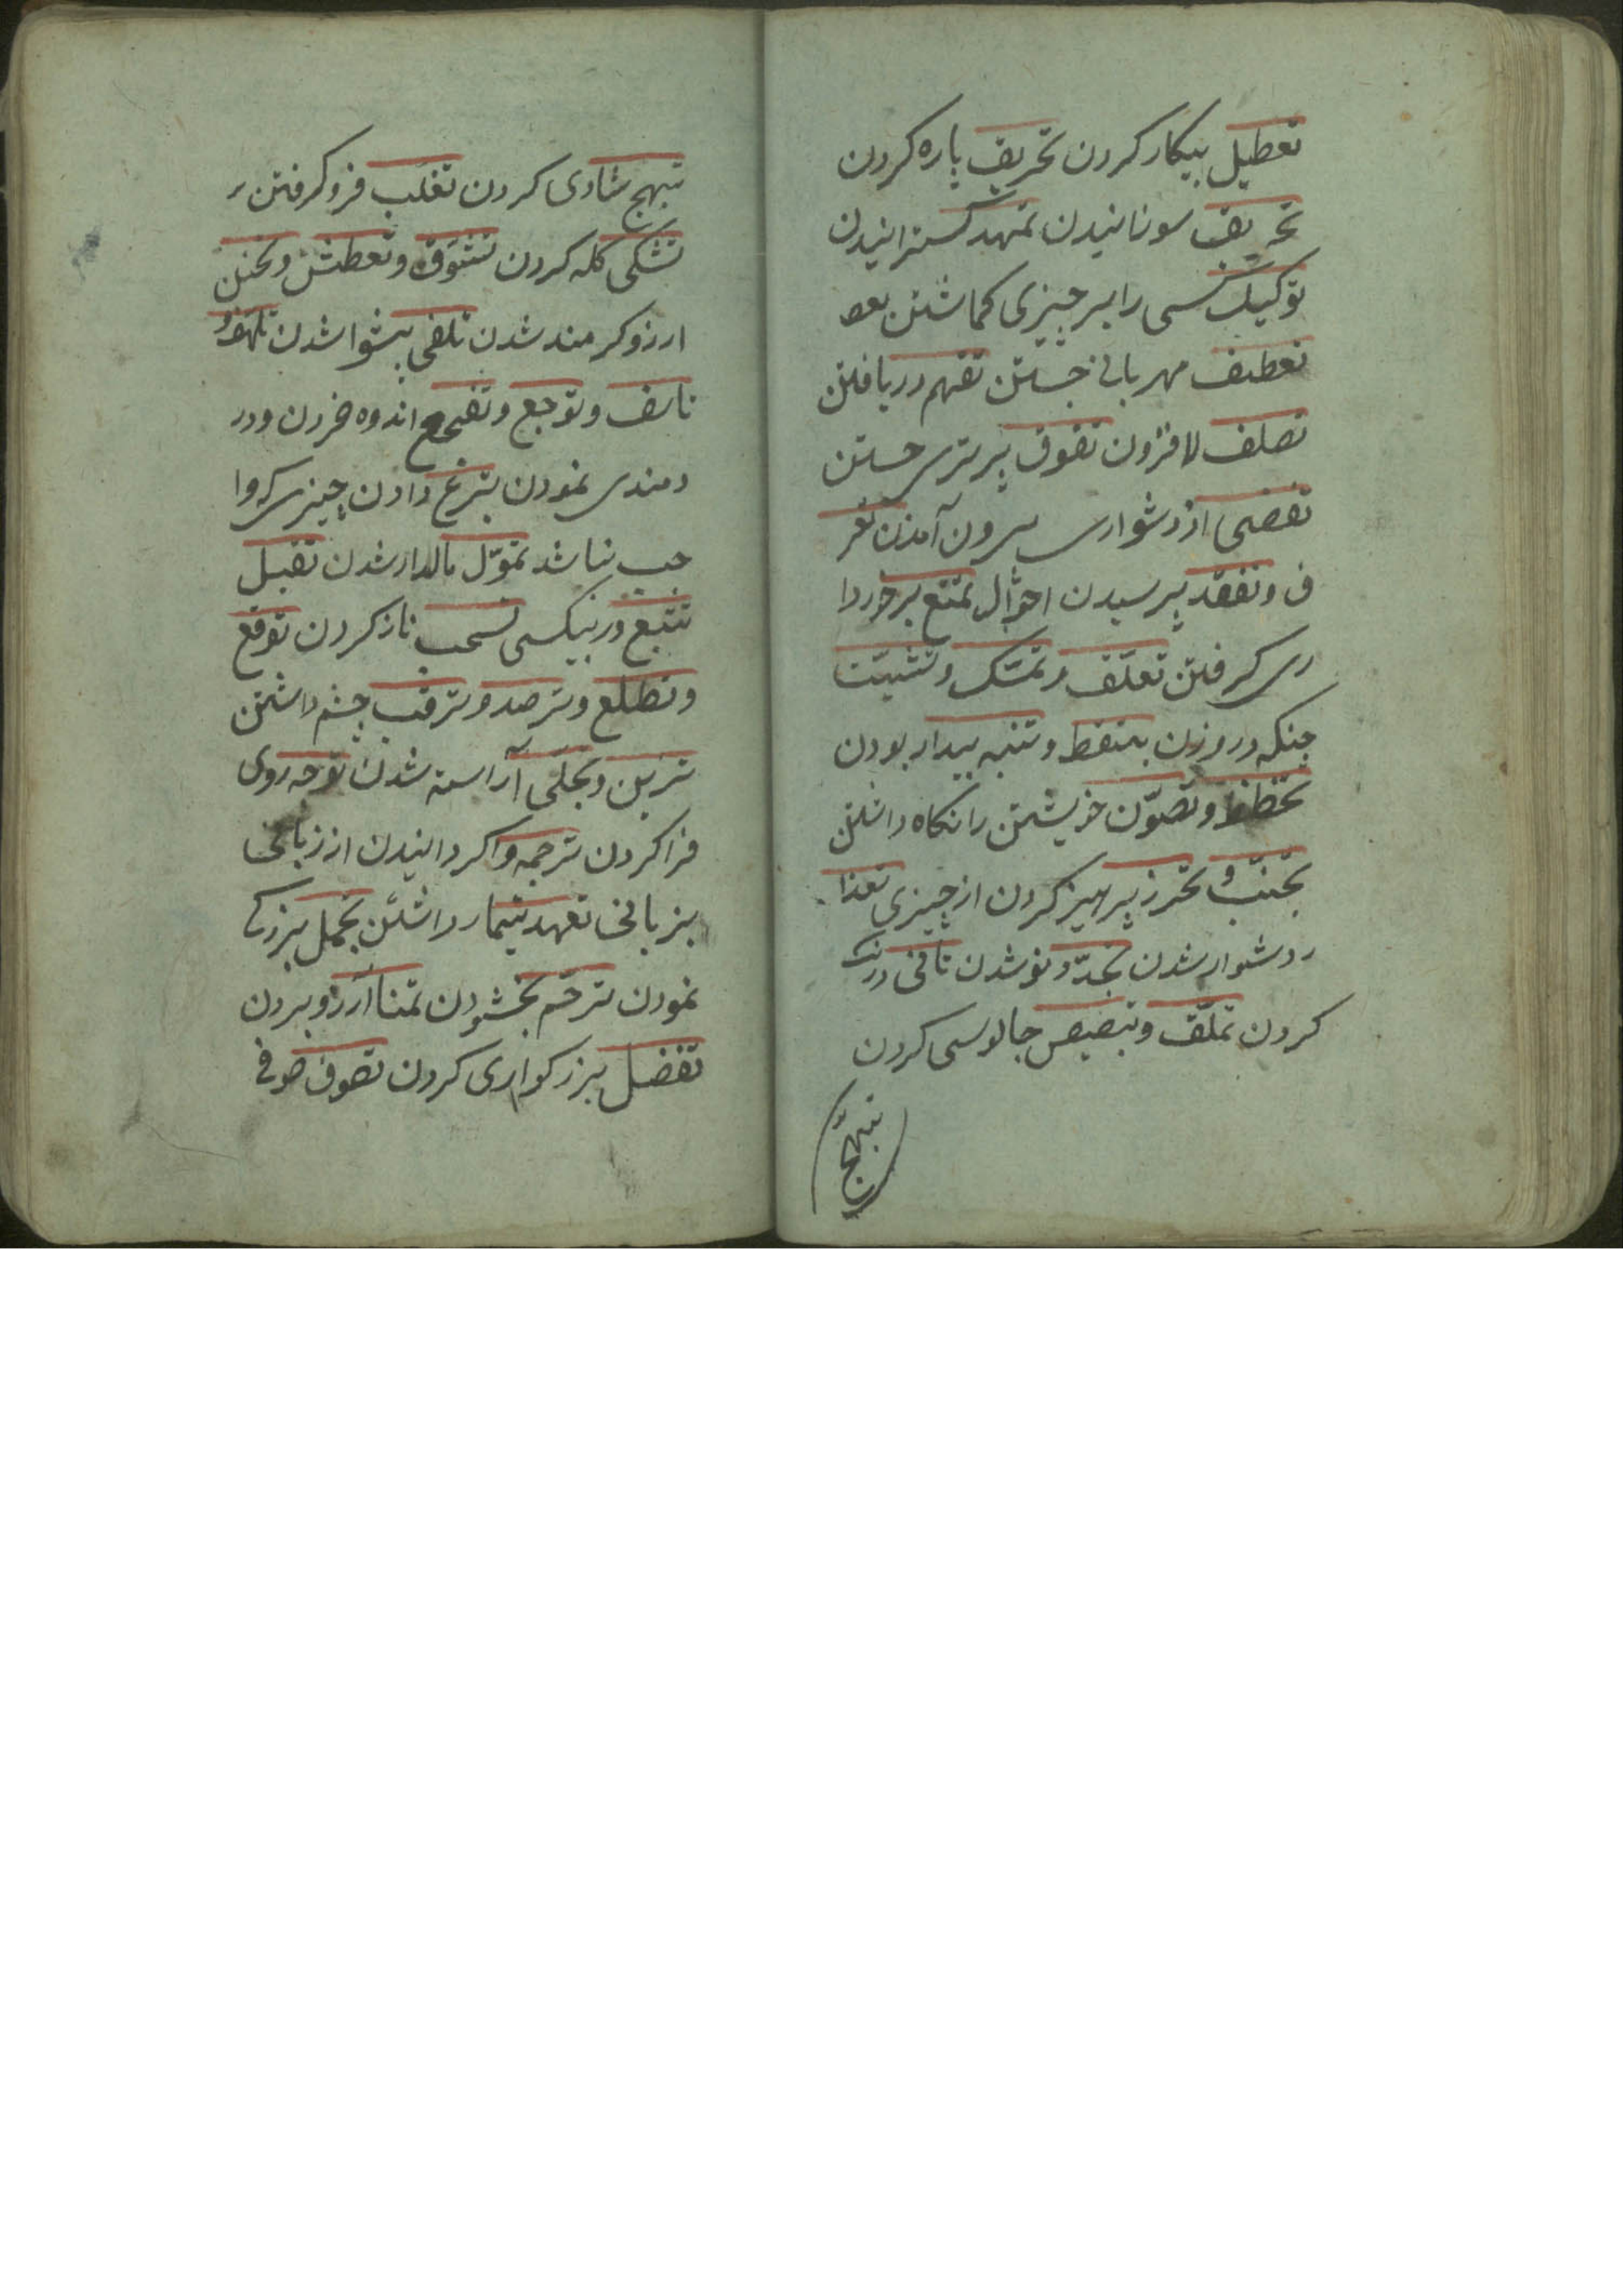 تعطیل بیکار کردن تخریق پاره کردن
تحریق سوزانیدن تمهید کسترانیدن
توکیل کسی را بر چیزی کماشتن بعو
تعطف مهربانی جستن تفهم دریافتن
تصلف لافزدن تفوق برتری جستن
تفصی از دشواری بیرون آمدن تعر
ف و تفقد پرسیدن احوال تمتع برخوردا
ری کرفتن تعلّق و تمسّک و تشبّث
چنکه در وزدن تیقظ و تنبه بیدار بودن
تحفّظ و تصوّن خویشتن را نکاه داشتن
تجنّب و تحرز پرهیز کردن از چیزی تعذا
ر دشوار شدن تجدّد نو شدن تانی درنک
کردن تملّق و تبصبص چابلوسی کردن
تبهّج
تبهج شادی کردن تغلب فرو کرفتن
تشکی کله کردن تشوق و تعطش و تحنن
ارزوکرمند شدن تلقی پیشوا شدن تلهف و
تاسف و توجع و تفجع اندوه خوردن و در
دمندی نمودن تبرع دادن چیزی که وا
جب نباشد تموّل مالدار شدن تقبل
تتبع در پی کسی تسحب ناز کردن توقع
و تطلع و ترصد و ترقب چشم داشتن
تزین و تحلّی آراسته شدن توجه روی
فرا کردن ترجمه واکردانیدن از زبانی
بزبانی تعهد تیمار داشتن تجمل بزرکی
نمودن ترحّم بخشودن تمنا آرزو بردن
تفضل بزرکواری کردن تصوف صوفی